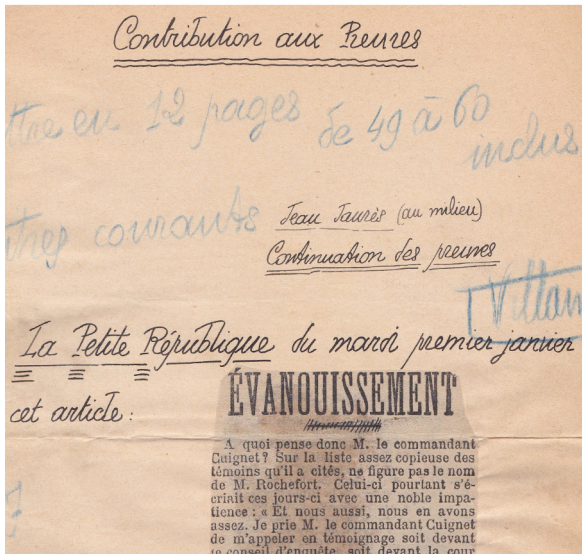 Contribution aux Preuves
ttre en 12 pages de 49 à 60
inclus
tres courants
Jean Jaurès (au milieu)
Continuation des preuves
Villain
La Petite République du mardi premier janvier
cet article :
ÉVANOUISSEMENT
A quoi pense donc M. le commandant
Cuignet ? Sur la liste assez copieuse des
témoins qu'il a cités, ne figure pas le nom
de M. Rochefort. Celui-ci pourtant s'é-
criait ces jours-ci avec une noble impa-
tience : « Et nous aussi, nous en avons
assez. Je prie M. le commandant Cuignet
de m'appeler en témoignage soit devant
le conseil d'enquête, soit devant la cour